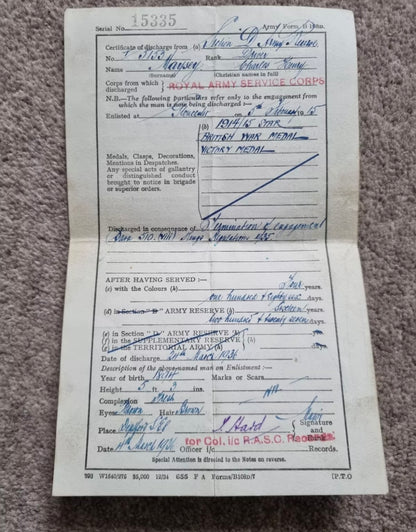 Serial No. 15335 Army Form B
Certificate of discharge from (a) Section D Army Reserve
No. Rank Driver
Name Massey Charles Henry
(Surname) (Christian names in full)
Corps from which discharged ROYAL ARMY SERVICE CORPS
N.B.—The following particulars refer only to the engagement from
which the man is now being discharged :—
Enlisted at on 5th 15
(b) 1914/15 STAR
BRITISH WAR MEDAL
VICTORY MEDAL
Medals, Clasps, Decorations,
Mentions in Despatches.
Any special acts of gallantry
or distinguished conduct
brought to notice in brigade
or superior orders.
Discharged in consequence of Termination of engagement
Para 370 Kings Regulations 1935.
AFTER HAVING SERVED :—
(c) with the Colours (h) Four years.
one hundred & eighty six days.
(d) in Section "D" ARMY RESERVE (h) Sixteen years.
two hundred & twenty seven days.
(e) in Section "D" ARMY RESERVE (h)
(f) in the SUPPLEMENTARY RESERVE
(g) in the TERRITORIAL ARMY (h)
Date of discharge 24th March 1936
Description of the above-named man on Enlistment :—
Year of birth Marks or Scars.
Height 5 ft. 3 ins.
Complexion Fresh Nil
Eyes Brown Hair Brown
Place Major Signature and Rank
for Col. i/c R.A.S.C. Records.
Date 4th March 1936 Officer i/c Records.
Special Attention is directed to the Notes on reverse.
12/34 655 F A Forms/ [P.T.O